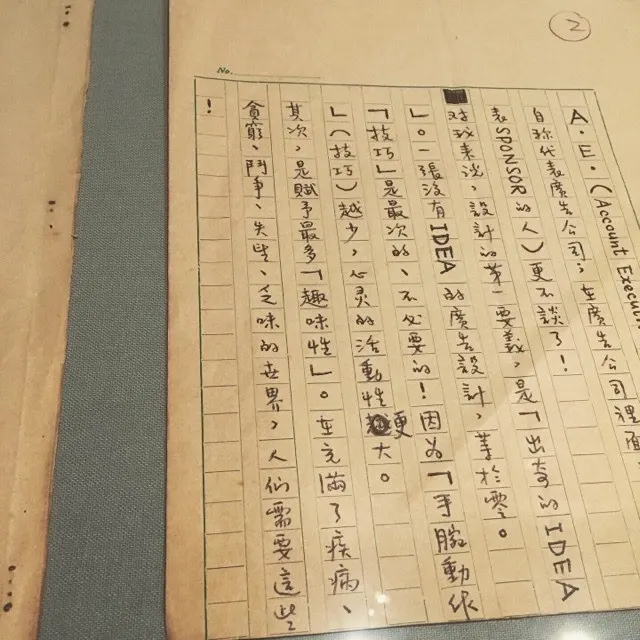 2
No.
A.E.(Account Execu
自称代表廣告公司；在廣告公司裡面
表SPONSOR的人）更不談了！
对我来说，設計的第一要義，是「出奇的IDEA
」。一張没有IDEA的廣告設計，等於零。
「技巧」是最次的、不必要的！因为「手腕動作
」（技巧）越少，心灵的活動性更大。
其次，是賦予最多「趣味性」。在充滿了疾病、
貧窮、鬥爭、失望、乏味的世界，人们需要這些
！